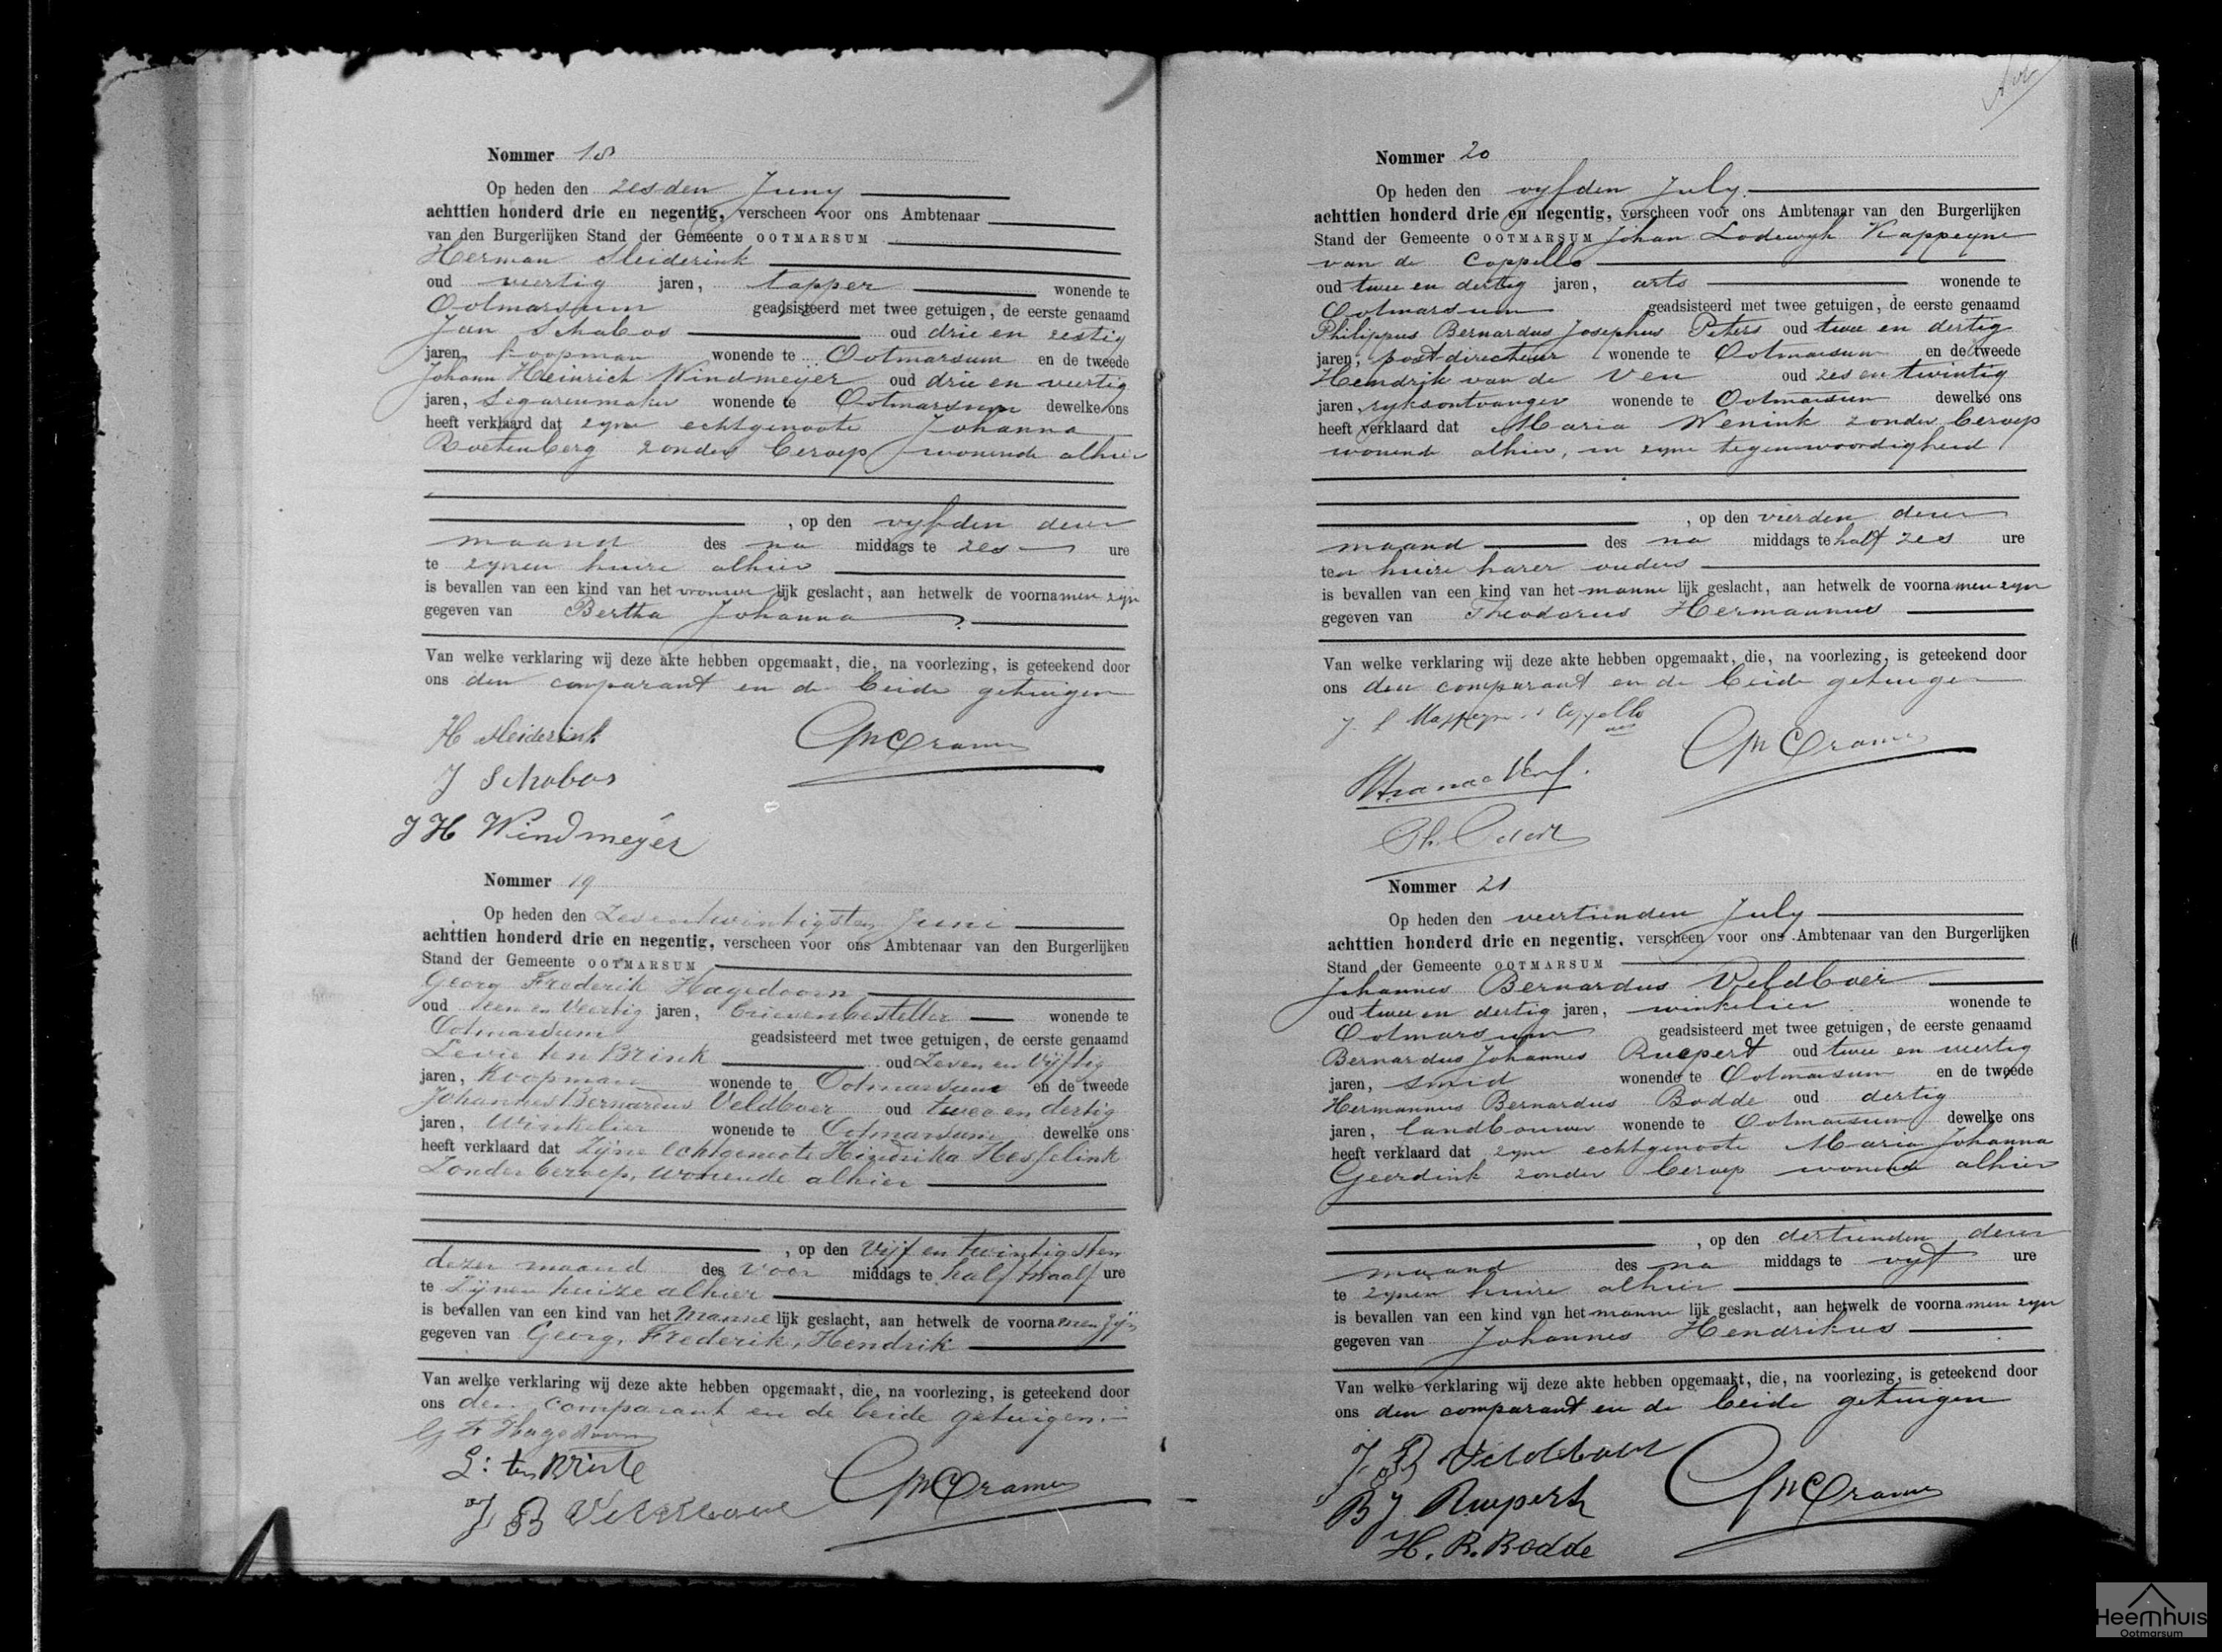 Nommer 18
Op heden den zesden Juny
achttien honderd drie en negentig, verscheen voor ons Ambtenaar
van den Burgerlijken Stand der Gemeente OOTMARSUM
Herman Sleiderink
oud veertig jaren, tapper wonende te
Ootmarsum geadsisteerd met twee getuigen, de eerste genaamd
Jan Schabos oud drie en zestig
jaren, koopman wonende te Ootmarsum en de tweede
Johann Heinrich Windmeÿer oud drie en veertig
jaren, segarenmaker wonende te Ootmarsum dewelke ons
heeft verklaard dat zyne echtgenoote Johanna
Roetenberg zonder beroep wonende alhier
, op den vyfden dezer
maand des na middags te zes ure
te zynen huize alhier
is bevallen van een kind van het vrouwe lijk geslacht, aan hetwelk de voornamen zyn
gegeven van Bertha Johanna
Van welke verklaring wij deze akte hebben opgemaakt, die, na voorlezing, is geteekend door
ons den comparant en de beide getuigen
H Sleiderink
J Schabos
J H Windmeÿer
Nommer 19
Op heden den Zesentwintigsten Juni
achttien honderd drie en negentig, verscheen voor ons Ambtenaar van den Burgerlijken
Stand der Gemeente OOTMARSUM
Georg Frederik Hagedoorn
oud een en Veertig jaren, brievenbesteller wonende te
Ootmarsum geadsisteerd met twee getuigen, de eerste genaamd
Levie ten Brink oud Zeven en Vijftig
jaren, Koopman wonende te Ootmarsum en de tweede
Johannes Bernardus Veldboer oud twee en dertig
jaren, Winkelier wonende te Ootmarsum dewelke ons
heeft verklaard dat Zijne echtgenoote Hendrika Hesselink
Zonder beroep, wonende alhier
, op den Vijf en twintigsten
dezer maand des voor middags te half twaalf ure
te Zijnen huize alhier
is bevallen van een kind van het Manne lijk geslacht, aan hetwelk de voornamen zijn
gegeven van Georg, Frederik, Hendrik
Van welke verklaring wij deze akte hebben opgemaakt, die, na voorlezing, is geteekend door
ons den comparant en de beide getuigen.
G F Hagedoorn
L: ten Brink
J B Veldboer
Nommer 20
Op heden den vyfden July.
achttien honderd drie en negentig, verscheen voor ons Ambtenaar van den Burgerlijken
Stand der Gemeente OOTMARSUM Johan Lodewyk Kappeyne
van de Coppello
oud twee en dertig jaren, arts wonende te
Ootmarsum geadsisteerd met twee getuigen, de eerste genaamd
Philippus Bernardus Josephus Peters oud twee en dertig
jaren, postdirecteur wonende te Ootmarsum en de tweede
Hendrik van de Ven oud zes en twintig
jaren, ryksontvanger wonende te Ootmarsum dewelke ons
heeft verklaard dat Maria Wenink zonder beroep
wonende alhier, in zyne tegenwoordigheid
, op den vierden dezer
maand des na middags te half zes ure
ten huize harer ouders
is bevallen van een kind van het manne lijk geslacht, aan hetwelk de voornamen zyn
gegeven van Theodorus Hermannus
Van welke verklaring wij deze akte hebben opgemaakt, die, na voorlezing, is geteekend door
ons den comparant en de beide getuigen
Nommer 21
Op heden den veertienden July
achttien honderd drie en negentig, verscheen voor ons Ambtenaar van den Burgerlijken
Stand der Gemeente OOTMARSUM
Johannes Bernardus Veldboer
oud twee en dertig jaren, winkelier wonende te
Ootmarsum geadsisteerd met twee getuigen, de eerste genaamd
Bernardus Johannes Ruepert oud twee en veertig
jaren, smid wonende te Ootmarsum en de tweede
Hermannus Bernardus Bodde oud dertig
jaren, landbouwer wonende te Ootmarsum dewelke ons
heeft verklaard dat zyne echtgenoote Maria Johanna
Geerdink zonder beroep wonende alhier
, op den dertienden dezer
maand des na middags te vyf ure
te zynen huize alhier
is bevallen van een kind van het manne lijk geslacht, aan hetwelk de voornamen zyn
gegeven van Johannes Hendrikus
Van welke verklaring wij deze akte hebben opgemaakt, die, na voorlezing, is geteekend door
ons den comparant en de beide getuigen
J. B Veldboer
B J. Ruepert
H. B. Bodde
Heemhuis
Ootmarsum